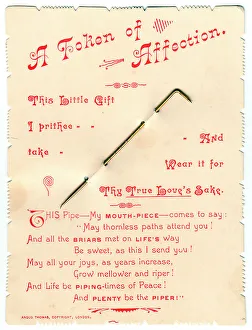 A Token of
Affection.
This Little Gift
I prithee - -
- - And
take -
Wear it for
Thy True Love's Sake.
THIS Pipe—My MOUTH-PIECE—comes to say:
"May thornless paths attend you!
And all the BRIARS met on LIFE'S way
Be sweet, as this I send you!
May all your joys, as years increase,
Grow mellower and riper!
And Life be PIPING-times of Peace!
And PLENTY be the PIPER!"
ANGUS THOMAS, COPYRIGHT, LONDON.